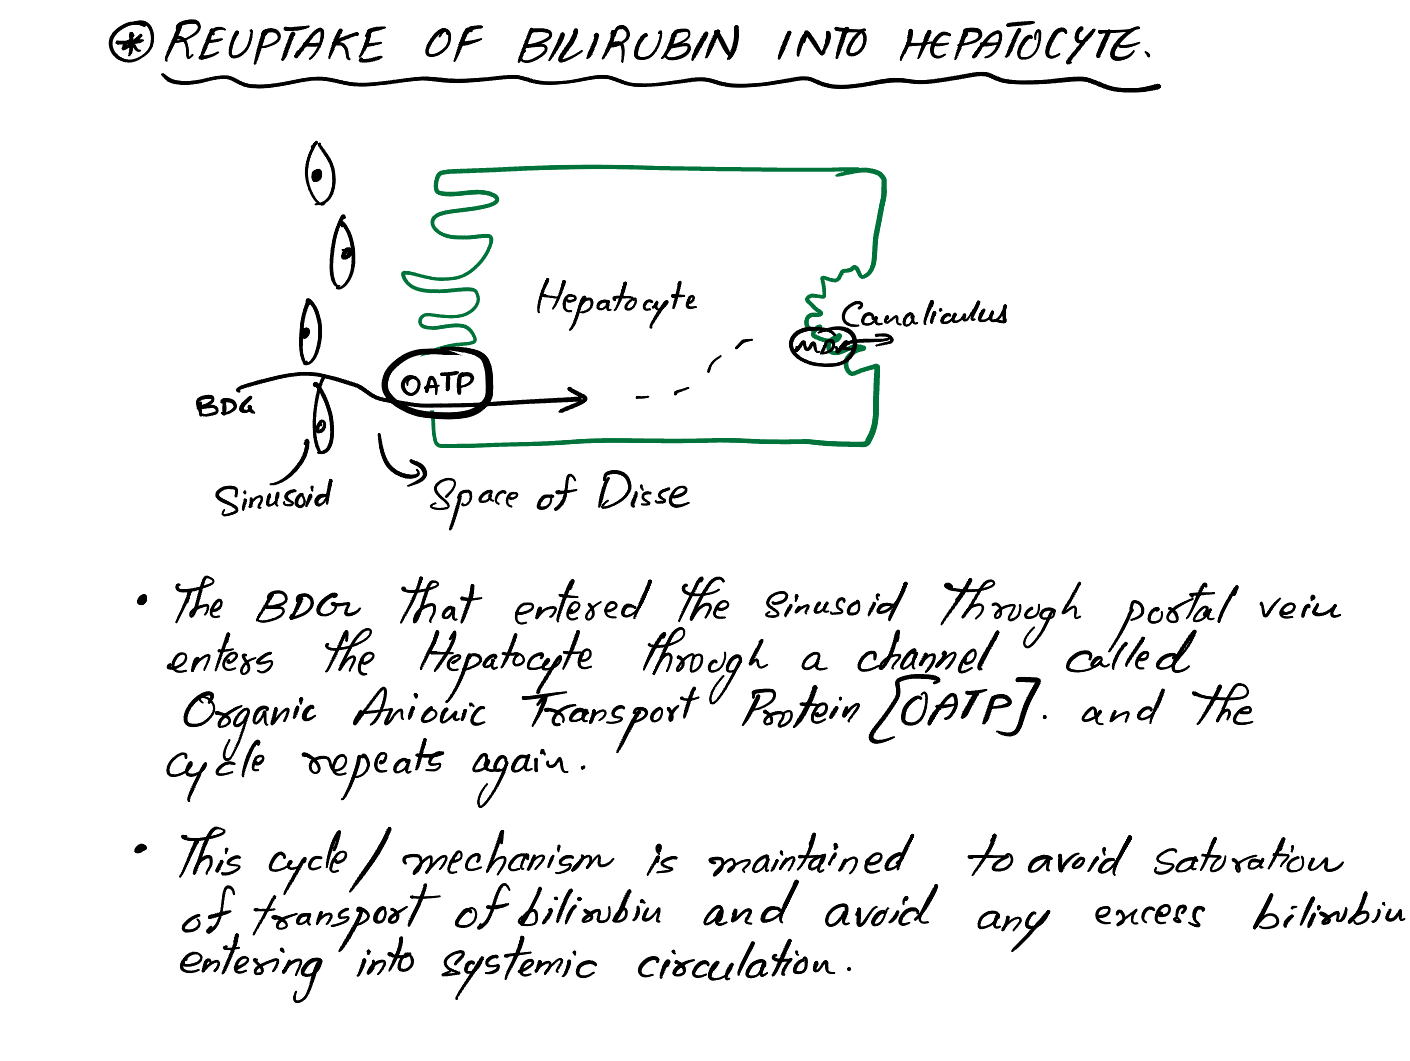 * REUPTAKE OF BILIRUBIN INTO HEPATOCYTE.
Hepatocyte
Canaliculus
MDR
OATP
BDG
Sinusoid
Space of Disse
• The BDG that entered the sinusoid through portal vein
enters the Hepatocyte through a channel called
Organic Anionic Transport Protein [OATP]. and the
cycle repeats again.
• This cycle/mechanism is maintained to avoid saturation
of transport of bilirubin and avoid any excess bilirubin
entering into systemic circulation.